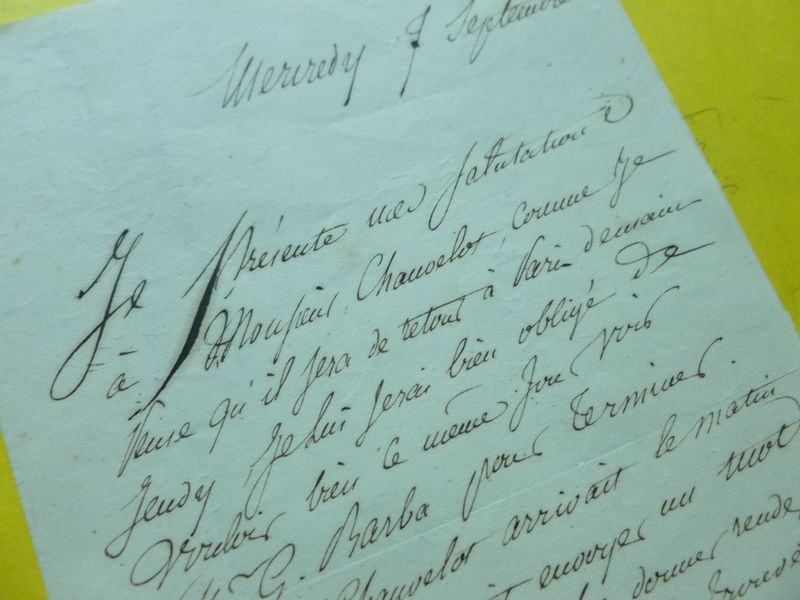 Mercredy 7 Septembre
Je Présente mes salutations
à Monsieur Chauvelot, comme Je
Pense qu'il sera de retour à Paris demain
Jeudy, Je lui serai bien obligé de
vouloir bien ce même Jour voir
G. Barba pour terminer.
Chauvelot arrivait le matin
envoyer un mot
donner rendez